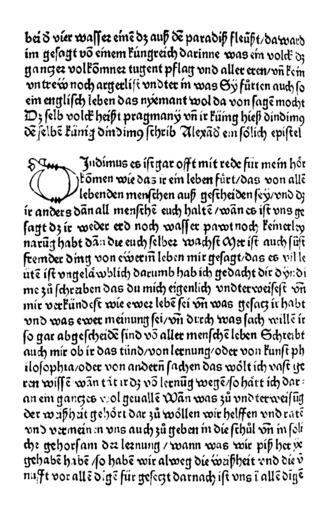 bei d vier wasser einē dz auß dē paradiß fleüßt/da ward
im gesagt vō einem küngreich darinne was ein volck dz
gantzer volkōmner tugent pflag vnd aller eren/vn̄ kein
vntrew noch argerlist vndter in was Sy fürten auch so
ein englisch leben das nyemant wol da von sagē mocht
Dz selb volck heißt pragmany vn̄ ir künig hieß dindimꝰ
dē selbē künig dindimꝰ schrib Alexād̄ ein sölich epistel
Dindimus es ist gar offt mit rede für mein hör
kōmen wie das ir ein leben fürt/das von allē
lebenden menschen auß gescheiden sey/vnd dz
ir anders dān all menschē euch haltē/wān es ist vns ge
sagt dz ir weder erd noch wasser pawt noch keinerley
narūg habt dān die euch selber wachst Mer ist auch süst
fremder ding von ewerm leben mir gesagt/das es
leütē ist vngelaüblich darumb hab ich gedacht dir
zū schreiben das du mich eigenlich vndterweisest vn̄
mir verkündest wie ewer lebē sei vn̄ was gesatz ir habt
vnd was ewer meinung sei/vn̄ durch was sach willē ir
so gar abgescheidē sind vō aller menschē leben Schreibt
auch mir ob ir das tünd/von lernung/oder von kunst ph
ilosophia/oder von andern̄ sachen das wölt ich vast ge
ren wissē wān ir dz vō lernūg wegē/so hört ich dar
an ein gantzes wol geuallē Wān was zū vndterweisūg
der waßheit gehört dar zū wöllen wir helffen vnd ratē
vnd vns auch zū geben in die schūl vn̄ in soli
che gehorsam der lernung/wann was wir piß her ye
gehabē habē/so habē wir alweg die waßheit vnd die v̄
nufft vor allē digē für gesetzt darnach ist vns ī allē digē